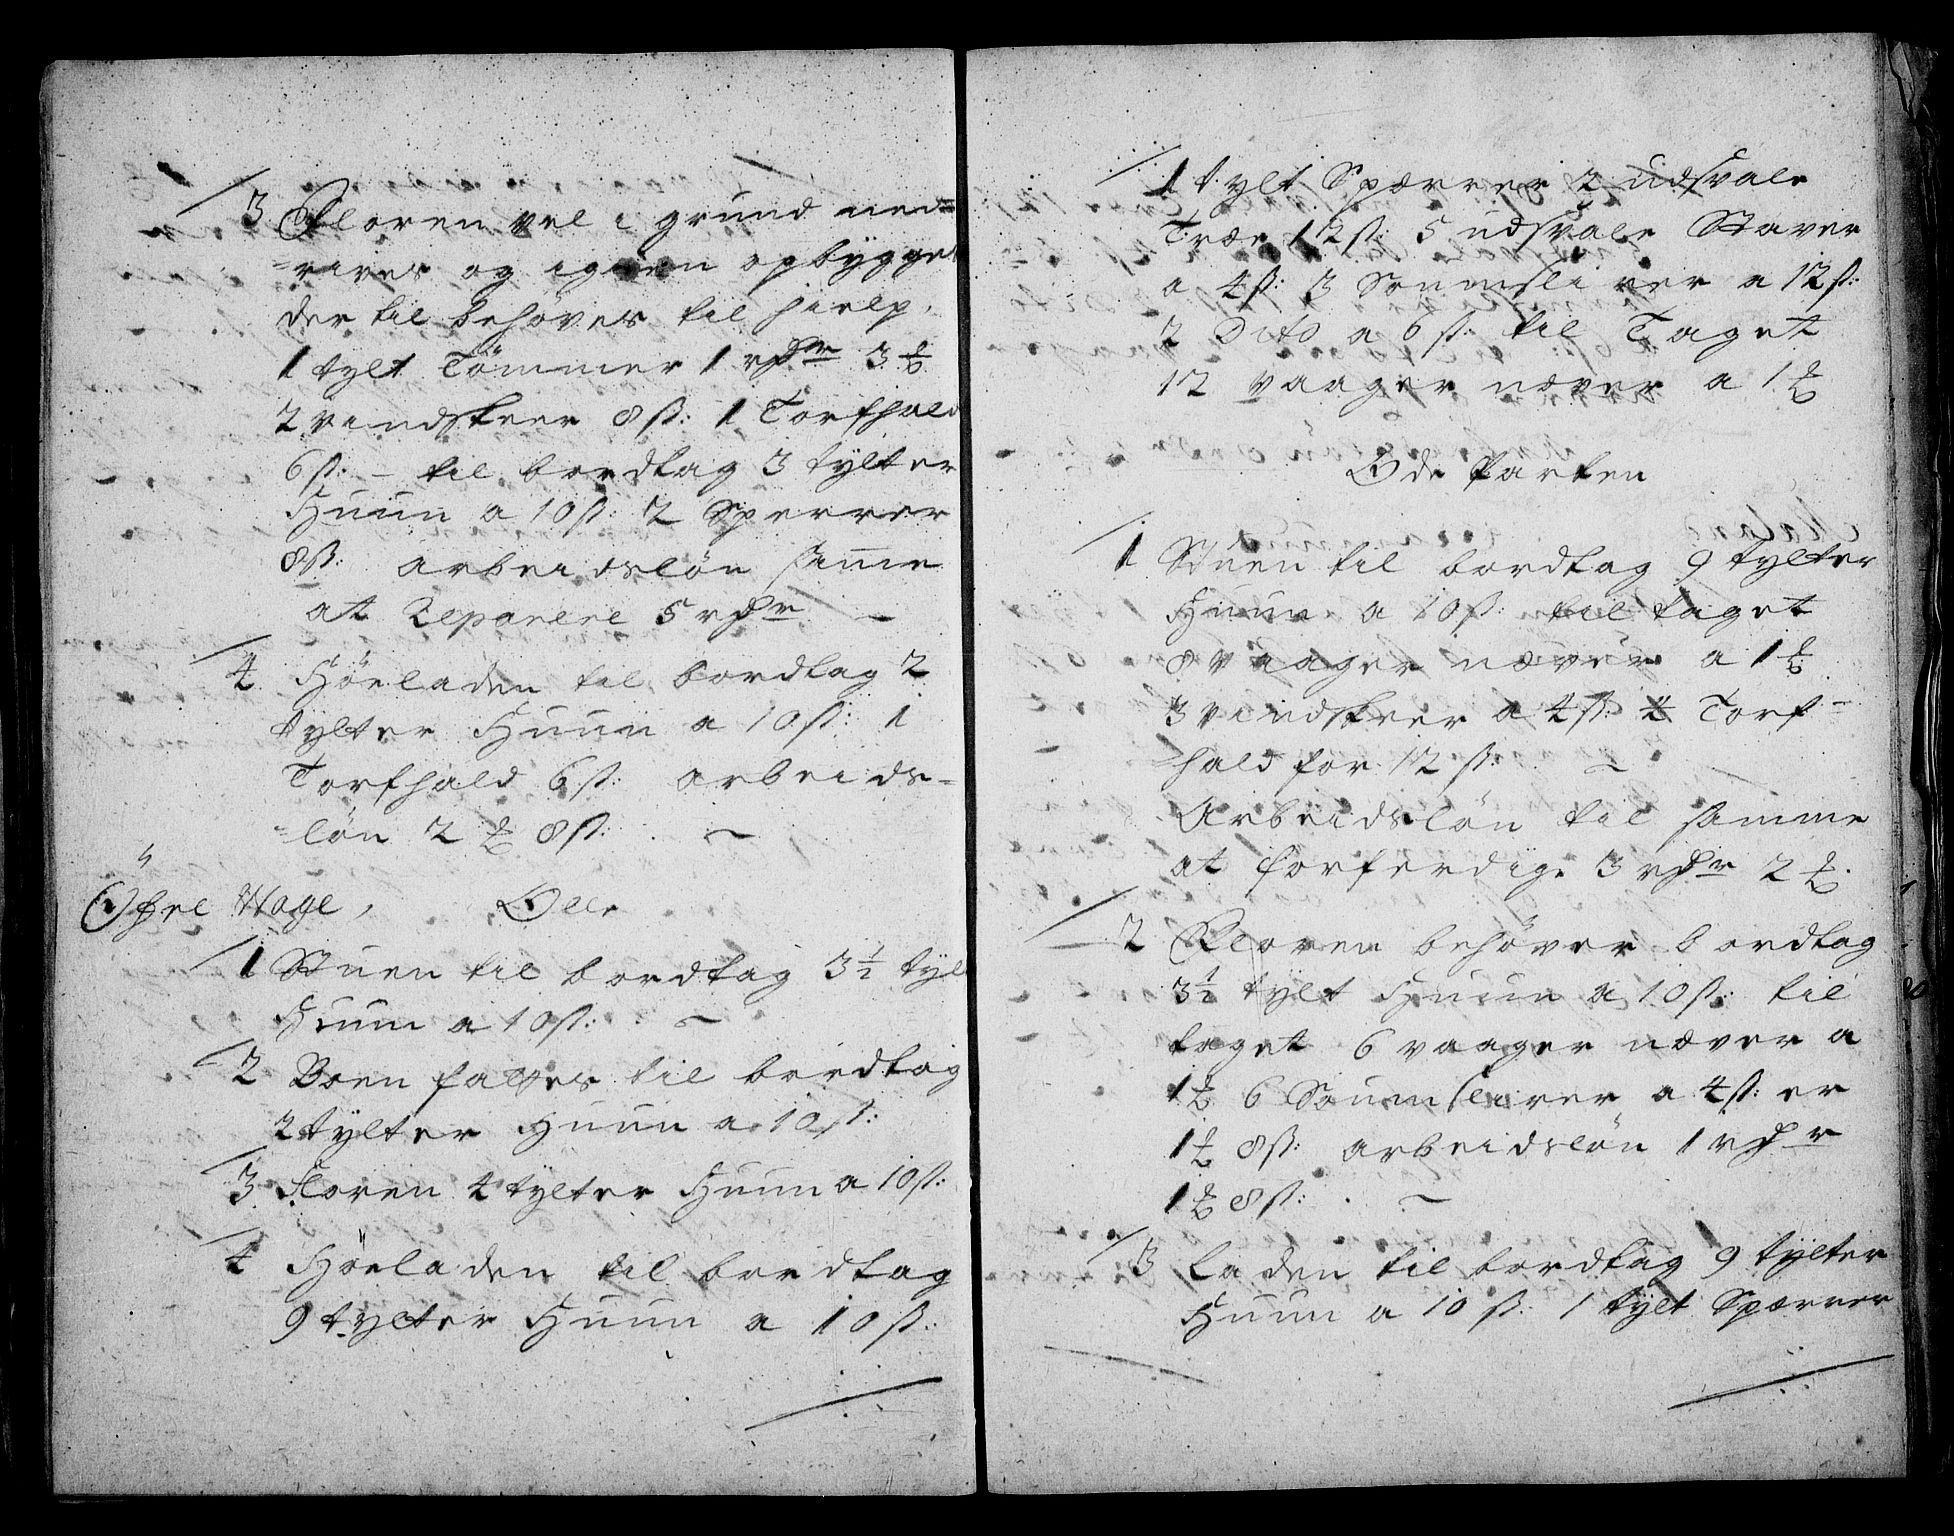 3 Floren vel i grund ned=
=rives og igien opbygges
der til behöves til hielp,
1 tylt Tömmer 1 rdr 3 ℔
2 vindskeer 8 ß: 1 Torfhald
6 ß: – til bordtag 3 tylter
Huun a 10 ß: 2 Sperrer
8 ß: arbeidslön samme
at Reparere 5 rdr –
4 Höeladen til bordtag 2
tylter Huun a 10 ß: 1
Torfhald 6 ß: arbeids=
=lön 2 ℔ 8 ß: . ~
Öfre Hage,
1 Stuen til bordtag 3½ tylt
Huun a 10 ß: . ~
2 Boen til bordtag
2 tylter Huun a 10 ß:
3 Floren 4 tylter Huun a 10 ß:
4 Höeladen til bordtag
9 tylter Huun a 10 ß:
1 tylt Spærrer 2 udsvale
Træe 12 ß: 5 udsvale Staver
a 4 ß: 3 Soumslirer a 12 ß:
2 Dito a 6 ß: til Taget
12 vaager næver a 1 ℔
Öde Parten
1 Stuen til bordtag 9 tylter
Huun a 10 ß: til taget
8 vaager næver a 1 ℔
3 vindskeer a 4 ß: 2 Torf=
=hald for 12 ß: ~
Arbeidslön til samme
at forferdige 3 rdr 2 ℔.
2 Floren behöver bordtag
3½ tylt Huun a 10 ß: til
taget 6 vaager næver a
1 ℔ 6 Soumslirer a 4 ß: er
1 ℔ 8 ß: arbeidslön 1 rdr
1 ℔ 8 ß: . ~
3 Laden til bordtag 9 tylter
Huun a 10 ß: 1 tylt Spærrer